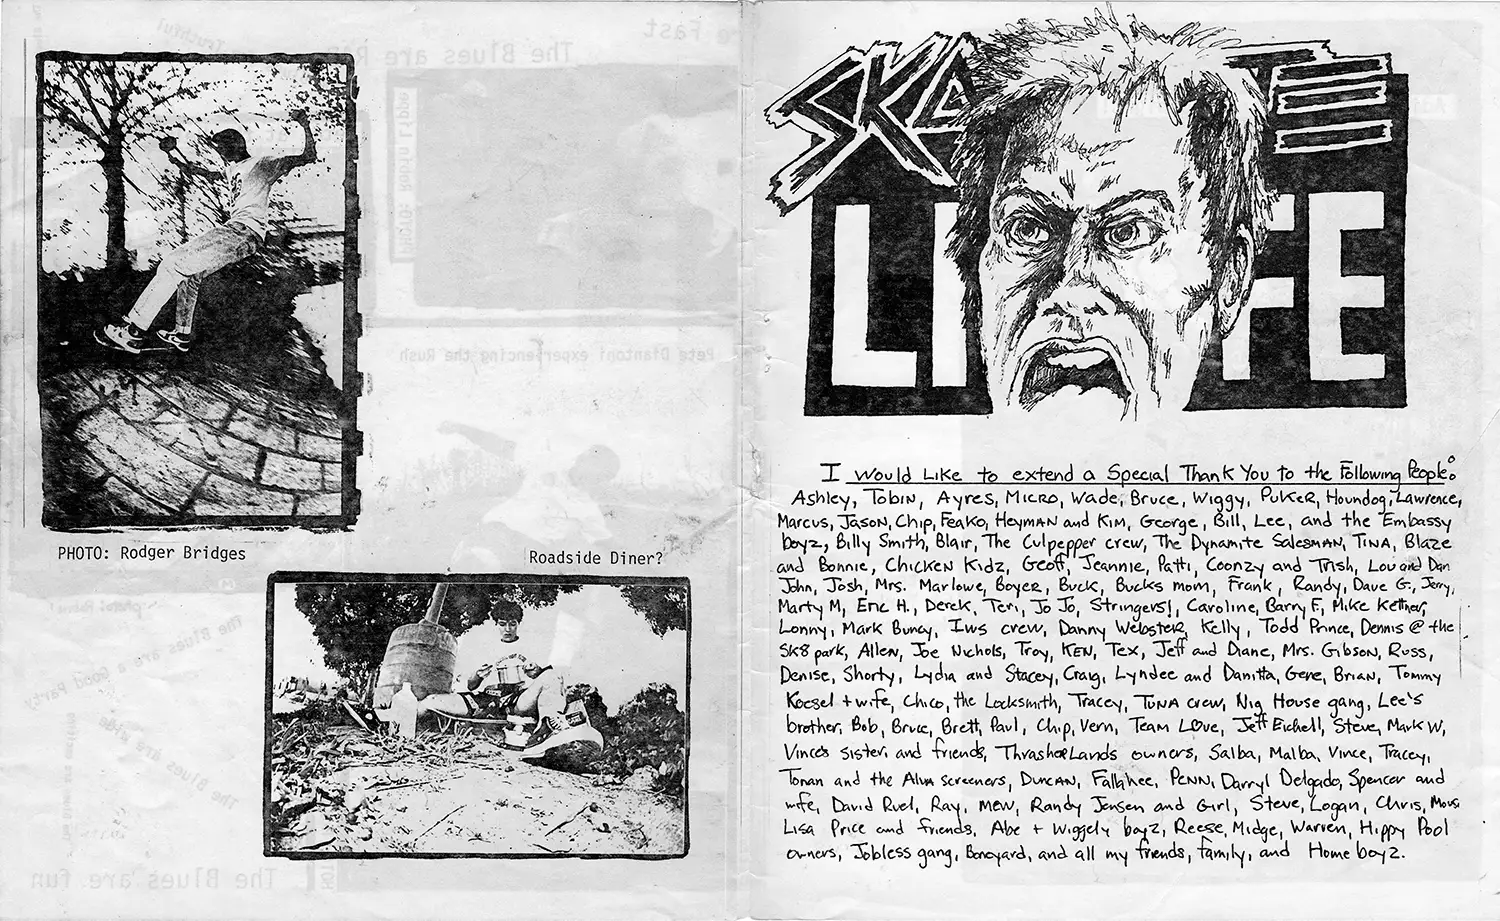 PHOTO: Rodger Bridges
Roadside Diner?
SKATE
LIFE
I would Like to extend a Special Thank You to the Following People:
Ashley, Tobin, Ayres, Micro, Wade, Bruce, Wiggy, Puker, Houndog, Lawrence,
Marcus, Jason, Chip, Feako, Heyman and Kim, George, Bill, Lee, and the Embassy
boyz, Billy Smith, Blair, The Culpepper crew, The Dynamite Salesman, Tina, Blaze
and Bonnie, Chicken Kidz, Geoff, Jeannie, Patti, Coonzy and Trish, Lou and Dan
John, Josh, Mrs. Marlowe, Boyer, Buck, Bucks mom, Frank, Randy, Dave G., Jerry,
Marty M, Eric H., Derek, Teri, Jo Jo, Stringers!, Caroline, Barry F, Mike Kettner,
Lonny, Mark Buncy, Iws crew, Danny Webster, Kelly, Todd Prince, Dennis @ the
SK8 park, Allen, Joe Nichols, Troy, Ken, Tex, Jeff and Diane, Mrs. Gibson, Russ,
Denise, Shorty, Lydia and Stacey, Craig, Lyndee and Danitta, Gene, Brian, Tommy
Koesel + wife, Chico, the Locksmith, Tracey, Tuna crew, Nig House gang, Lee's
brother, Bob, Bruce, Brett, Paul, Chip, Vern, Team Love, Jeff Eichell, Steve, Mark W,
Vince's sister, and friends, ThrasherLands owners, Salba, Malba, Vince, Tracey,
Tonan and the Alva screeners, Duncan, Fallahee, Penn, Darryl Delgado, Spencer and
wife, David Ruel, Ray, Mew, Randy Jensen and Girl, Steve, Logan, Chris,
Lisa Price and friends, Abe + Wiggely boyz, Reese, Midge, Warren, Hippy Pool
owners, Jobless gang, Boneyard, and all my friends, family, and Home boyz.